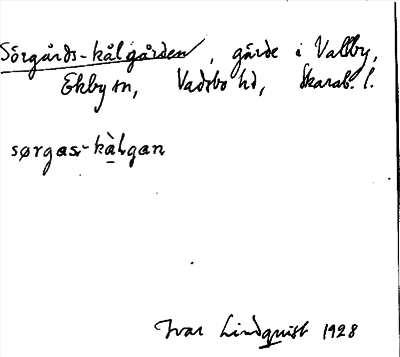 Sörgårds-kålgården, gärde i Vallby,
Ekby sn, Vadsbo hd, Skarab. l.
sørgas-kàlgan
Ivar Lindquist 1928